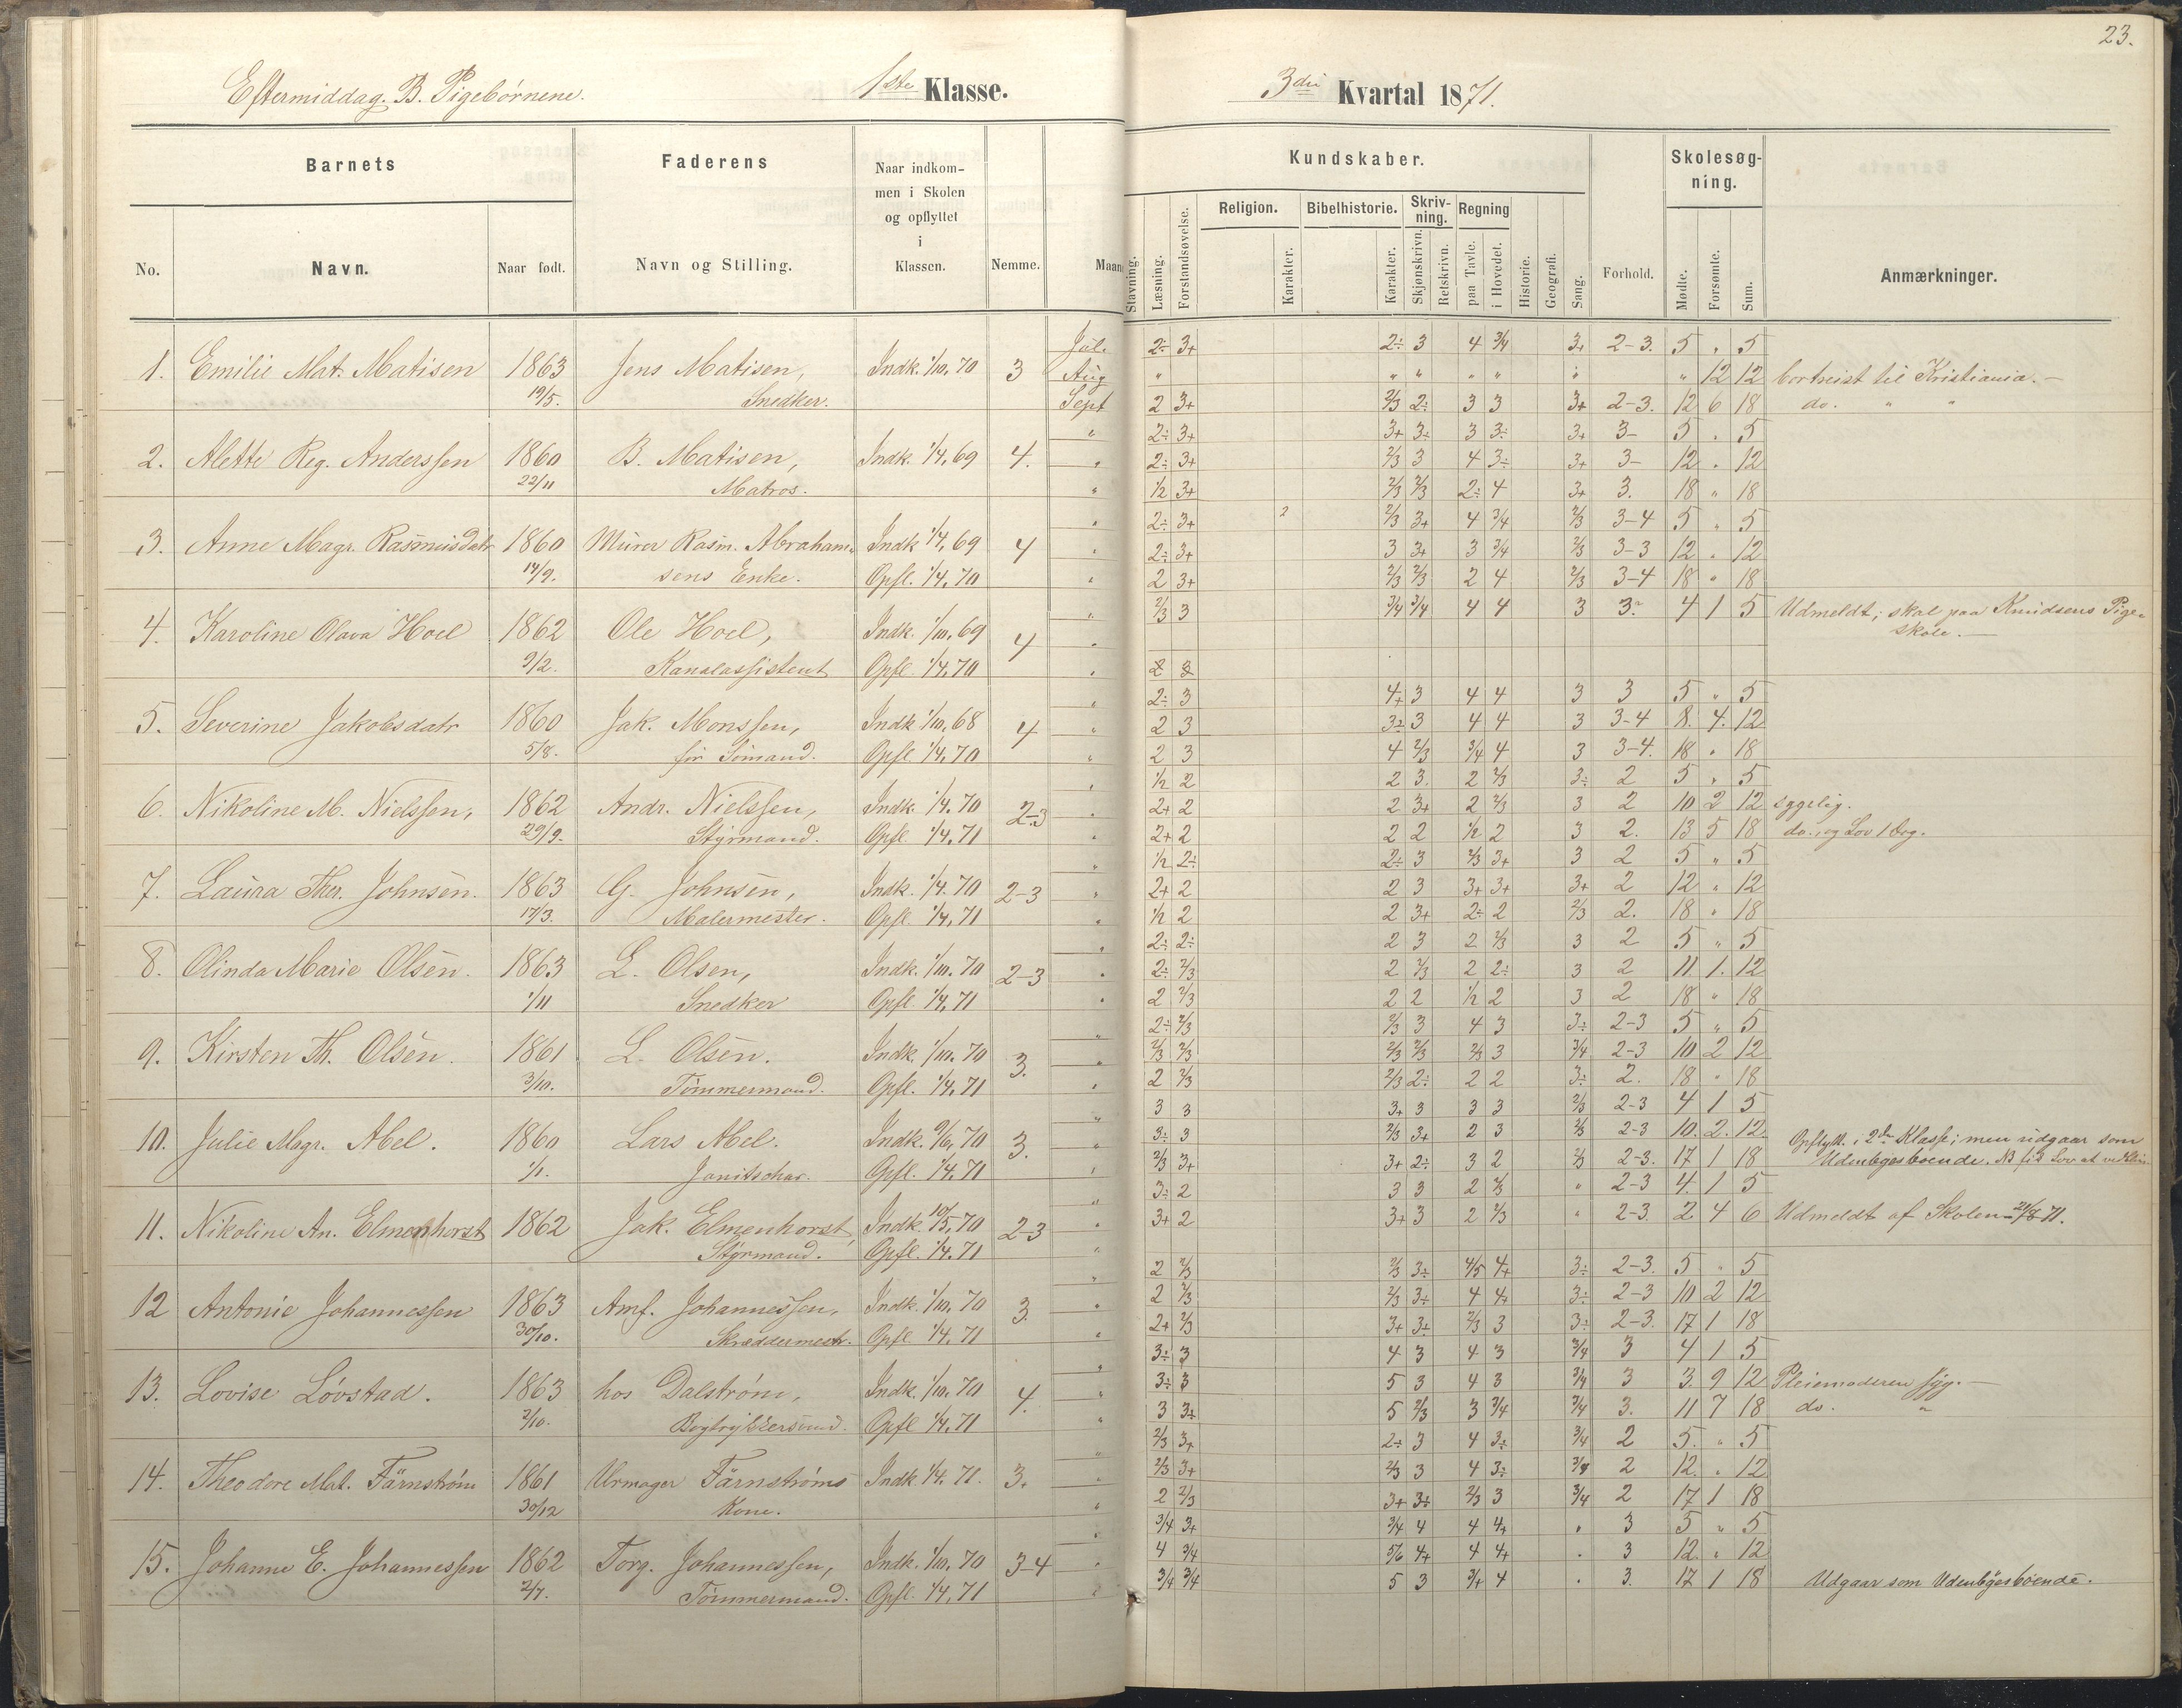 23.
Eftermiddag. B. Pigebørnene. 1ste Klasse. 3die Kvartal 1871.
Barnets Faderens Naar indkommen i Skolen og opflyttet i Klassen. Nemme. Maan Kundskaber. Skolesøgning. Anmærkninger.
No. Navn. Naar født. Navn og Stilling. Stavning. Læsning. Forstandsøvelse. Religion. Karakter. Bibelhistorie. Karakter. Skrivning. Skjønskrivn. Retskrivn. Regning paa Tavle. i Hovedet. Historie. Geografi. Sang. Forhold. Mødte. Forsømte. Sum.
Jul. 2÷ 3+ 2÷ 3 4 3/4 3+ 2-3. 5 " 5
1. Emilie Mat. Matisen 1863 Jens Matisen, Indk. 1/10, 70 3 Aug " " " " " " " 12 12 bortreist til Kristiania.—
19/5. Snedker. Sept 2 3+ 2/3 2÷ 3 3 3+ 2-3. 12 6 18 do. " "
" 2÷ 3+ 3+ 3÷ 3 3÷ 3+ 3- 5 " 5
2. Alette Reg. Anderssen 1860 B. Matisen, Indk. 1/4, 69 4. " 2÷ 3+ 2/3 3 4 3÷ 3+ 3- 12 " 12
22/11 Matros. " 1/2 3+ 2/3 2/3 2÷ 4 3+ 3. 18 " 18
" 2÷ 3+ 2 2/3 3+ 4 3/4 2/3 3-4 5 " 5
3. Anne Magr. Rasmusdatr 1860 Murer Rasm. Abraham- Indk 1/4, 69 4 " 2÷ 3+ 3 3+ 3 3/4 2/3 3-3 12 " 12
14/9. sens Enke. Opfl. 1/4, 70 " 2 3+ 2/3 2/3 2 4 2/3 3-4 18 " 18
" 2/3 3 3/4 3/4 4 4 3 3. 4 1 5 Udmeldt; skal paa Knudsens Pige-
4. Karoline Olava Hoel 1862 Ole Hoel, Indk. 1/10, 69 4 " skole.—
9/2. Kanalassistent Opfl. 1/4, 70 "
" 2÷ 3 4+ 3 4 4 3 3 5 " 5
5. Severine Jakobsdatr 1860 Jak. Monssen, Indk 1/10, 68 4 " 2 3 3÷ 3 4 4 3 3-4 8. 4. 12
5/8. før Sømand. Opfl. 1/4, 70 " 2 3 4 2/3 3/4 4 3 3-4. 18 " 18
" 1/2 2 2 3. 2 2/3 3÷ 2 5 " 5
6. Nikoline M. Nielssen, 1862 Andr. Nielssen, Indk. 1/4, 70 2-3 " 2+ 2 2 3+ 2 2/3 3 2 10 2 12 sygelig.
29/9. Styrmand. Opfl. 1/4, 71 " 2+ 2 2 2 1/2 2 3 2. 13 5 18 do. og Lov 1 Dag.
" 1/2 2÷ 2÷ 3 2/3 3+ 3 2 5 " 5
7. Laura Thr. Johnsen. 1863 G. Johnsen, Indk. 1/4. 70 2-3 " 2+ 2 2 3 3+ 3+ 3+ 2 12 " 12
17/3. Malermester. Opfl. 1/4, 71 " 1/2 2 2 3+ 2÷ 2 2/3 2. 18 " 18
" 2÷ 2÷ 2 3 2 2/3 3 2 5 " 5
8. Olinda Marie Olsen. 1863 L. Olsen, Indk. 1/10. 70 2-3 " 2÷ 2/3 2 2/3 2 2÷ 3 2 11. 1. 12
1/11 Snedker Opfl. 1/4, 71 " 2 2/3 2 2 1/2 2 3 2 18 " 18
" 2÷ 2/3 2/3 3 4 3 3÷ 2-3 5 " 5
9. Kirsten Th. Olsen. 1861 L. Olsen. Indk. 1/10. 70 3. " 2/3 2/3 2/3 2/3 2/3 3 3/4 2-3 10 2 12
3/10. Tømmermand. Opfl. 1/4, 71 " 2 2/3 2/3 2÷ 2 2 3÷ 2. 18 " 18
" 3 3 3+ 3 3 3 2/3 2-3 4 1 5
10. Julie Magr. Abel. 1860 Lars Abel. Indk. 9/6, 70 3. " 3÷ 3 2/3 3+ 2 3 2/3 2-3 10. 2. 12. Opflytt. i 2den Klasse; men udgaar som
1/1. Janitschar. Opfl. 1/4. 71 " 2/3 3+ 3+ 2÷ 3 2 2/3 2-3. 17 1 18 Udenbyesboende. NB fik Lov at
" 3÷ 2 3 3 2 2/3 " 2-3 4. 1 5
11. Nikoline An. Elmenhorst 1862 Jak. Elmenhorst, Indk. 10/5, 70 2-3 " 3+ 2 3+ 3 2 2/3 " 2-3. 2 4 6 Udmeldt af Skolen 21/8 71.
Styrmand. Opfl. 1/4. 71 "
" 2 2/3 2/3 3÷ 4/5 4+ 3÷ 2-3. 5 " 5
12 Antonie Johannessen 1863 Amf. Johannessen, Indk. 1/10. 70 3. " 2 2/3 2/3 3÷ 4 4+ 3÷ 2-3 10 2 12
30/10. Skræddermestr. Opfl 1/4. 71 " 2+ 2/3 3+ 3÷ 2/3 3 3÷ 2-3. 17 1 18
" 3÷ 3 4 3 4 3 3/4 3 4 1 5
13. Lovise Løvstad. 1863 hos Dalstrøm, Indk. 1/10. 70 4. " 3÷ 3 5 3 4 3 3/4 3 3. 9 12 Pleiemoderen syg.—
2/10. Bogtrykkersvend. Opfl 1/4, 71 " 3 3+ 5 2/3 3 3/4 3/4 3. 11 7 18 do. "
" 2/3 3+ 2÷ 3 4 3÷ 3/4 2 5. " 5
14. Theodore Mat. Färnstrøm 1861 Urmager Färnstrøms Indk 1/4. 71. 3. " 2/3 3+ 2/3 3 4 3÷ 3/4 2 12. " 12
30/12 Kone. " 2 2/3 3+ 3÷ 2/3 3 3/4 2 17 1 18
" 3/4 3+ 3/4 4 4 4+ " 3 5 " 5
15. Johanne E. Johannessen 1862 Torg. Johannessen, Indk. 1/10, 70 3-4 " 4 3/4 5/6 4+ 4 4+ " 3 12. " 12
2/7. Tømmermand. Opfl. 1/4, 71 " 3/4 3/4 5 3 3/4 4 " 3. 17 1 18 Udgaar som Udenbyesboende.